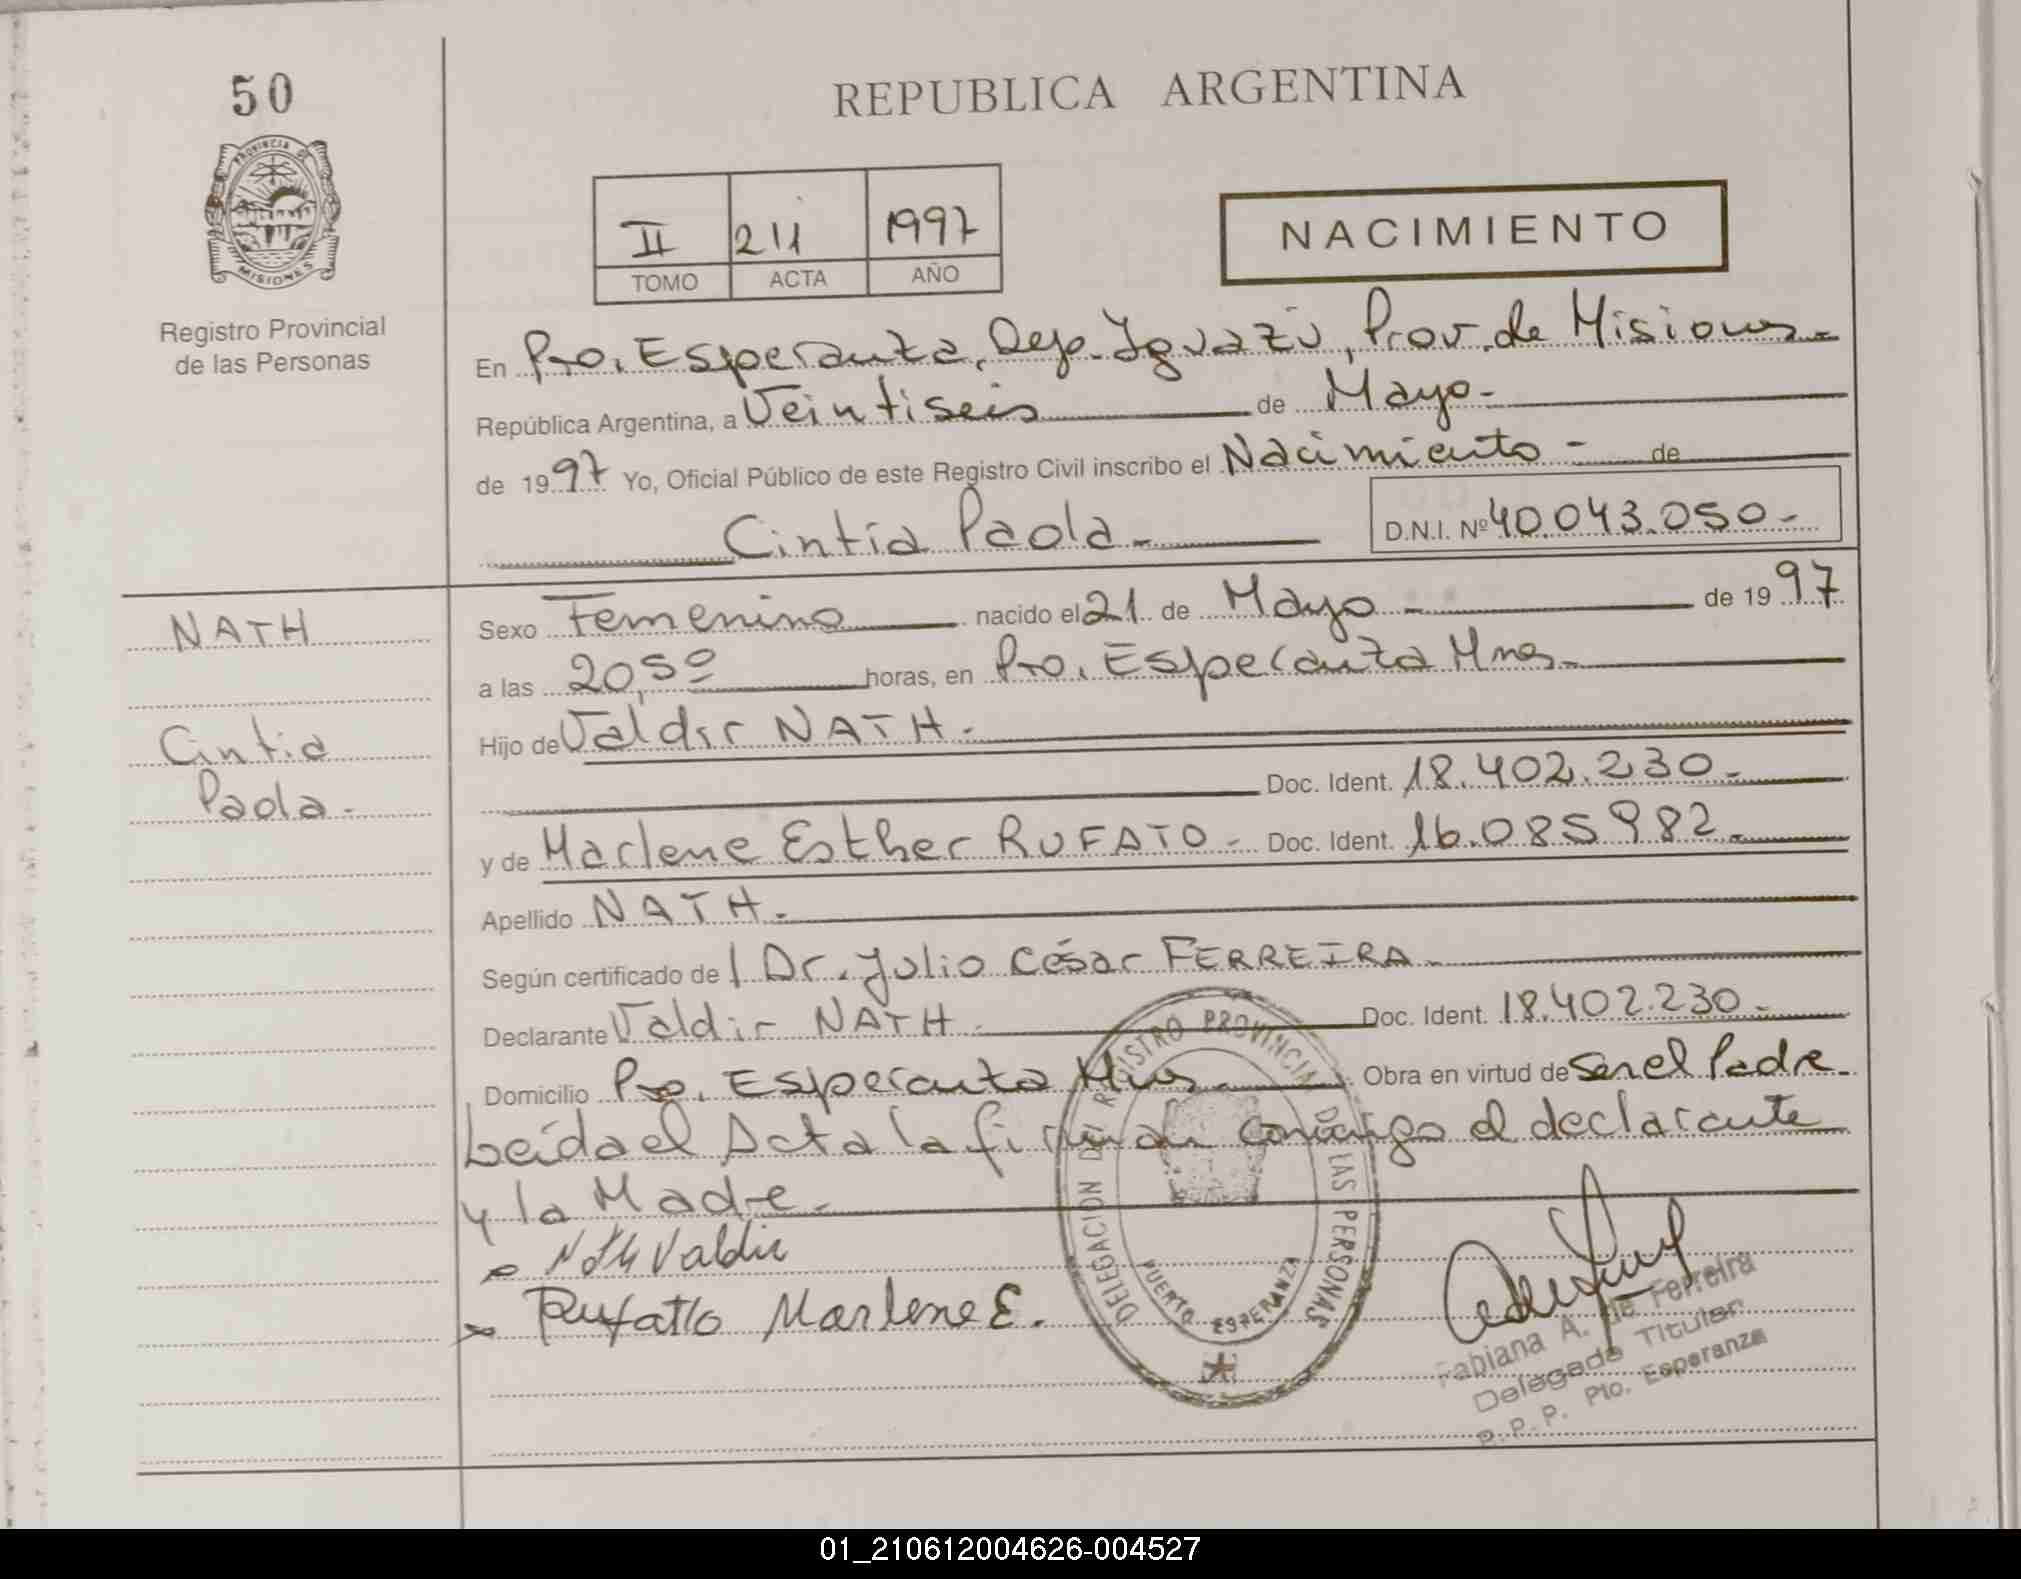 50
PROVINCIA DE
MISIONES
Registro Provincial
de las Personas
REPUBLICA ARGENTINA
II 211 1997
TOMO ACTA AÑO
NACIMIENTO
En Pto. Esperanza, Dep. Iguazú, Prov. de Misiones.-
República Argentina, a Veintiseis de Mayo.-
de 1997 Yo, Oficial Público de este Registro Civil inscribo el Nacimiento - de
Cintia Paola.- D.N.I. Nº 40.043.050-
NATH
Cintia
Paola.-
Sexo Femenino nacido el 21 de Mayo - de 1997
a las 20,50 horas, en Pto. Esperanza Mnes.-
Hijo de Valdir NATH.-
Doc. Ident. 18.402.230.-
y de Marlene Esther RUFATO.- Doc. Ident. 16.085982.-
Apellido NATH.-
Según certificado del Dr. Julio César FERREIRA.-
Declarante Valdir NATH.- Doc. Ident. 18.402.230.-
Domicilio Pto. Esperanza Mnes.- Obra en virtud de Ser el Padre.-
Leída el Acta la firman conmigo el declarante
y la Madre.-
Nath Valdir
Rufatto Marlene E.
DELEGACION DEL REGISTRO PROVINCIAL DE LAS PERSONAS
PUERTO ESPERANZA
Fabiana A. de Ferreira
Delegada Titular
R. P. P. Pto. Esperanza
01_210612004626-004527